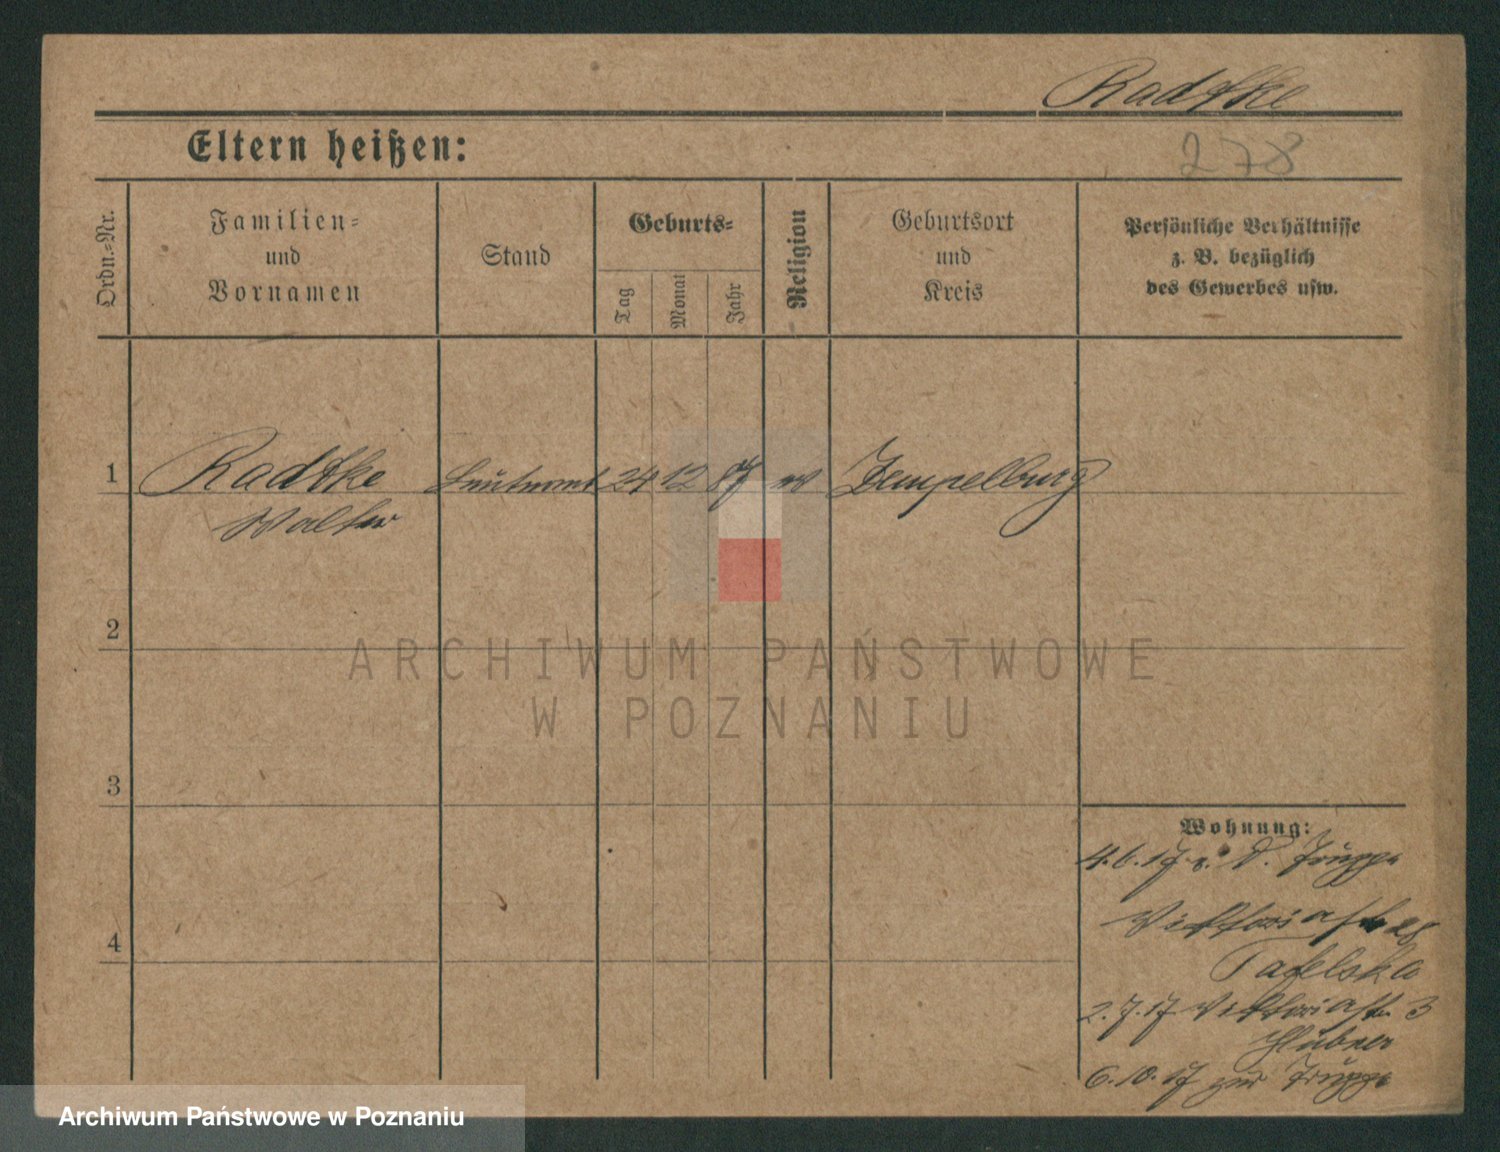 Radtke
Eltern heißen:
278
Ordn.-Nr.
Familien-
und
Vornamen
Stand
Geburts-
Tag
Monat
Jahr
Religion
Geburtsort
und
Kreis
Persönliche Verhältnisse
z. B. bezüglich
des Gewerbes usw.
1
Radtke
Walter
Leutnant
24
12
87
ev
Zempelburg
2
ARCHIWUM PAŃSTWOWE
W POZNANIU
3
4
Wohnung:
4.6.17 v. d. Truppe
Viktoriastr 28
Tafelska
2.7.17 Viktoriastr 3
Hübner
6.10.17 zur Truppe
Archiwum Państwowe w Poznaniu